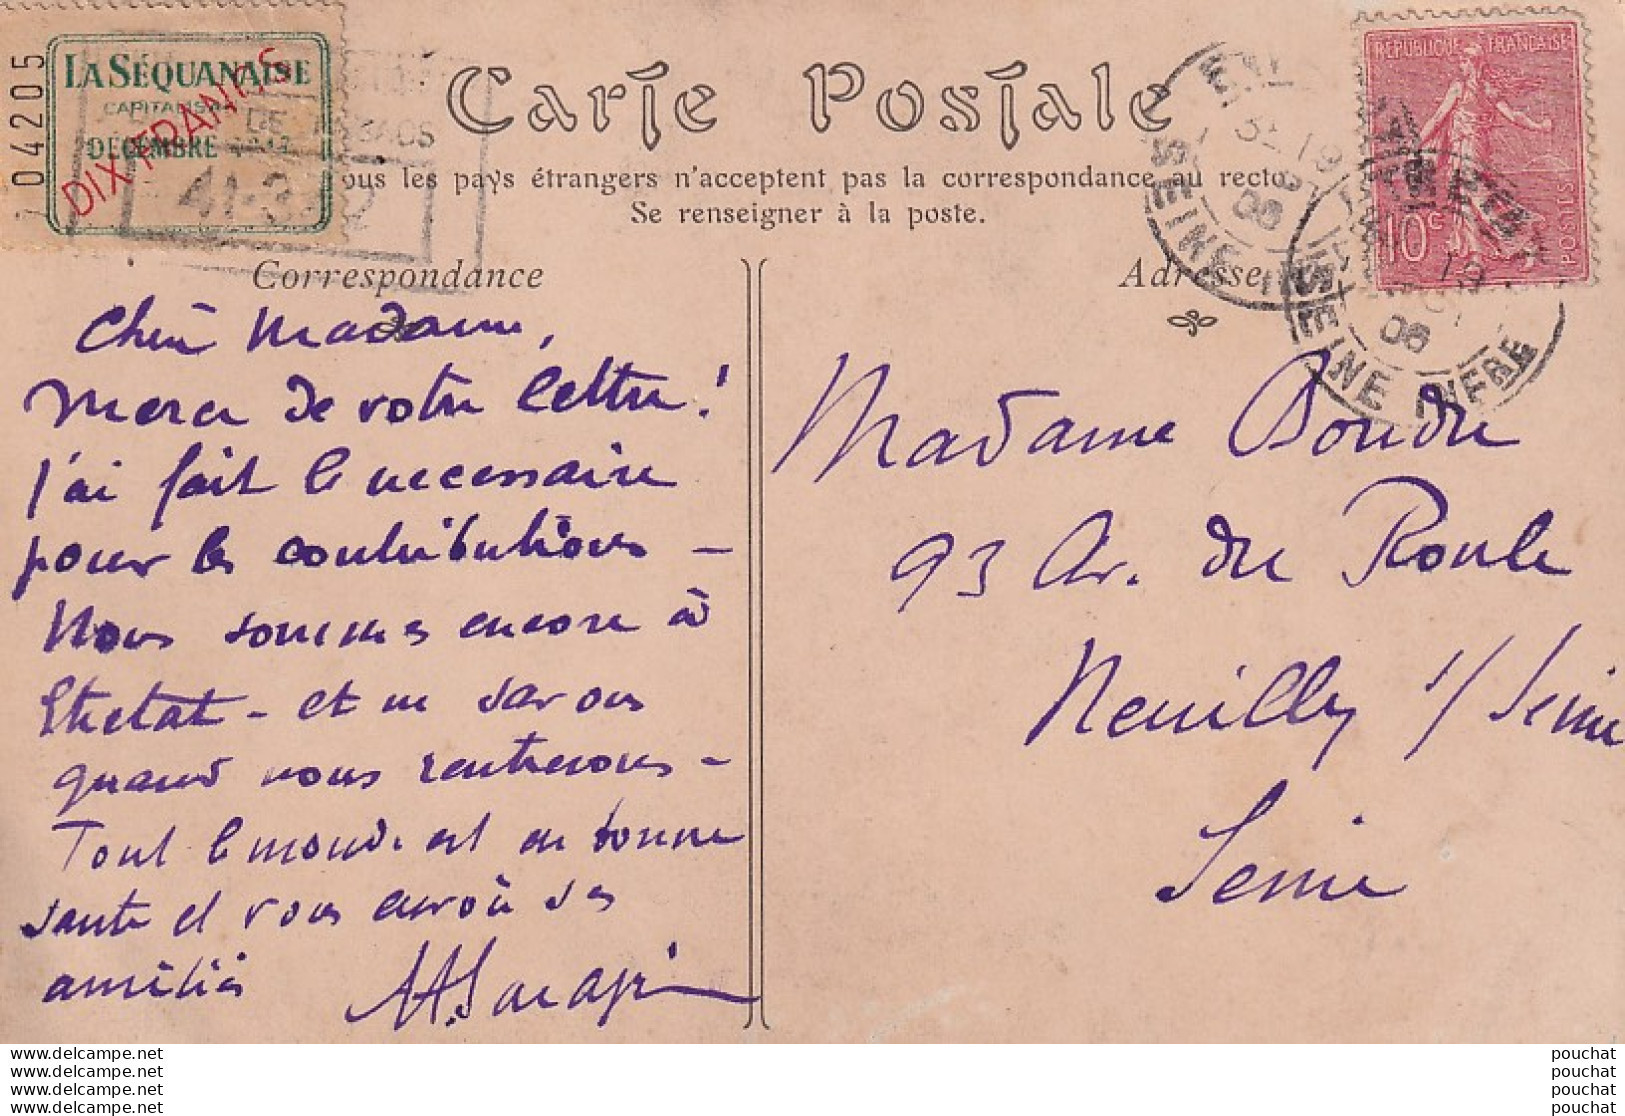 04205
LA SÉQUANAISE
CAPITALISA
DÉCEMBRE
DIX FRANCS
41-3
Carte Postale
ous les pays étrangers n'acceptent pas la correspondance au recto
Se renseigner à la poste.
RÉPUBLIQUE FRANÇAISE
10c
POSTES
SEINE
19
06
SEINE INFRE
19
06
Correspondance
Chère Madame,
Merci de votre lettre !
J'ai fait le necessaire
pour les contributions –
Nous sommes encore à
Etretat – et ne savons
quand nous rentrerons –
Tout le monde est en bonne
santé et vous envoie ses
amitiés
Adresse
Madame Boudre
93 Av. du Roule
Neuilly s/ Seine
Seine
www.delcampe.net
www.delcampe.net
www.delcampe.net
www.delcampe.net
pouchat
pouchat
pouchat
pouchat